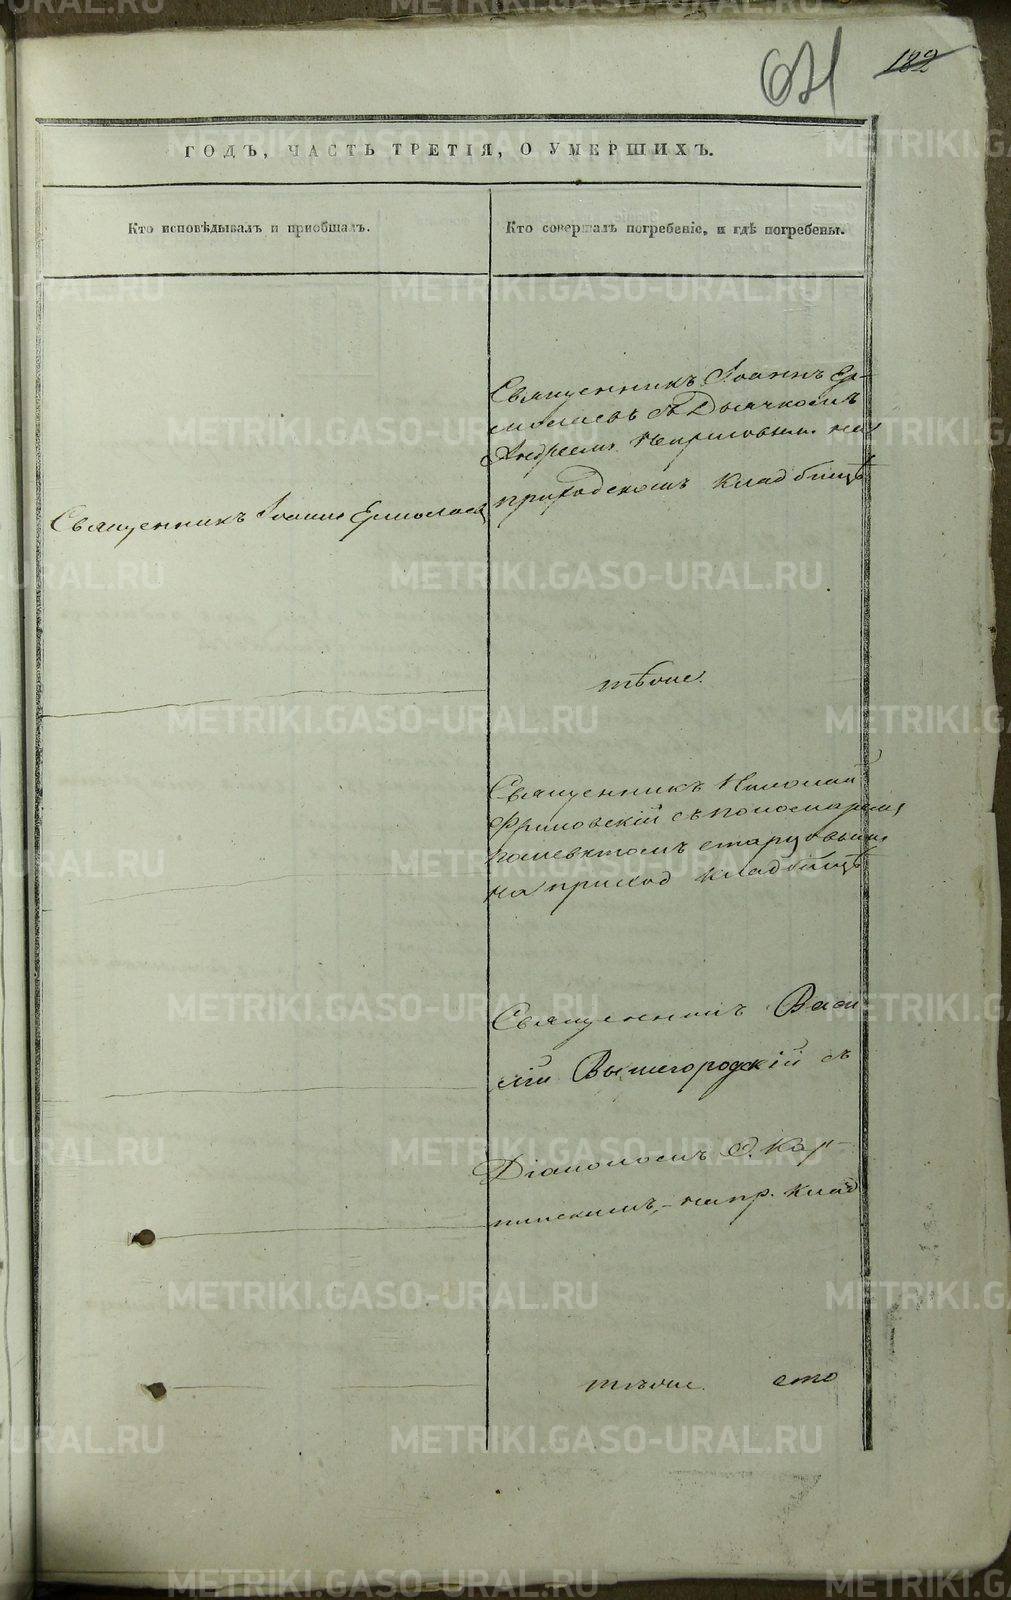 621
182
ГОДЪ, ЧАСТЬ ТРЕТІЯ, О УМЕРШИХЪ.
Кто исповѣдывалъ и приобщалъ.
Кто совершалъ погребеніе, и гдѣ погребены.
Священникъ Іоаннъ Ер-
молаевъ Дьячкомъ
Андреемъ на
приходскомъ кладбищѣ
Священникъ Іоаннъ Ермолаевъ
тѣже.
Священникъ Николай
Фриловскій съ пономаремъ
Старцовымъ
на приход кладбищѣ
Священникъ Васи
лій Вышегородскій съ
Діакономъ О. Кар-
пинскимъ, на пр. клад
тѣже. ето
METRIKI.GASO-URAL.RU